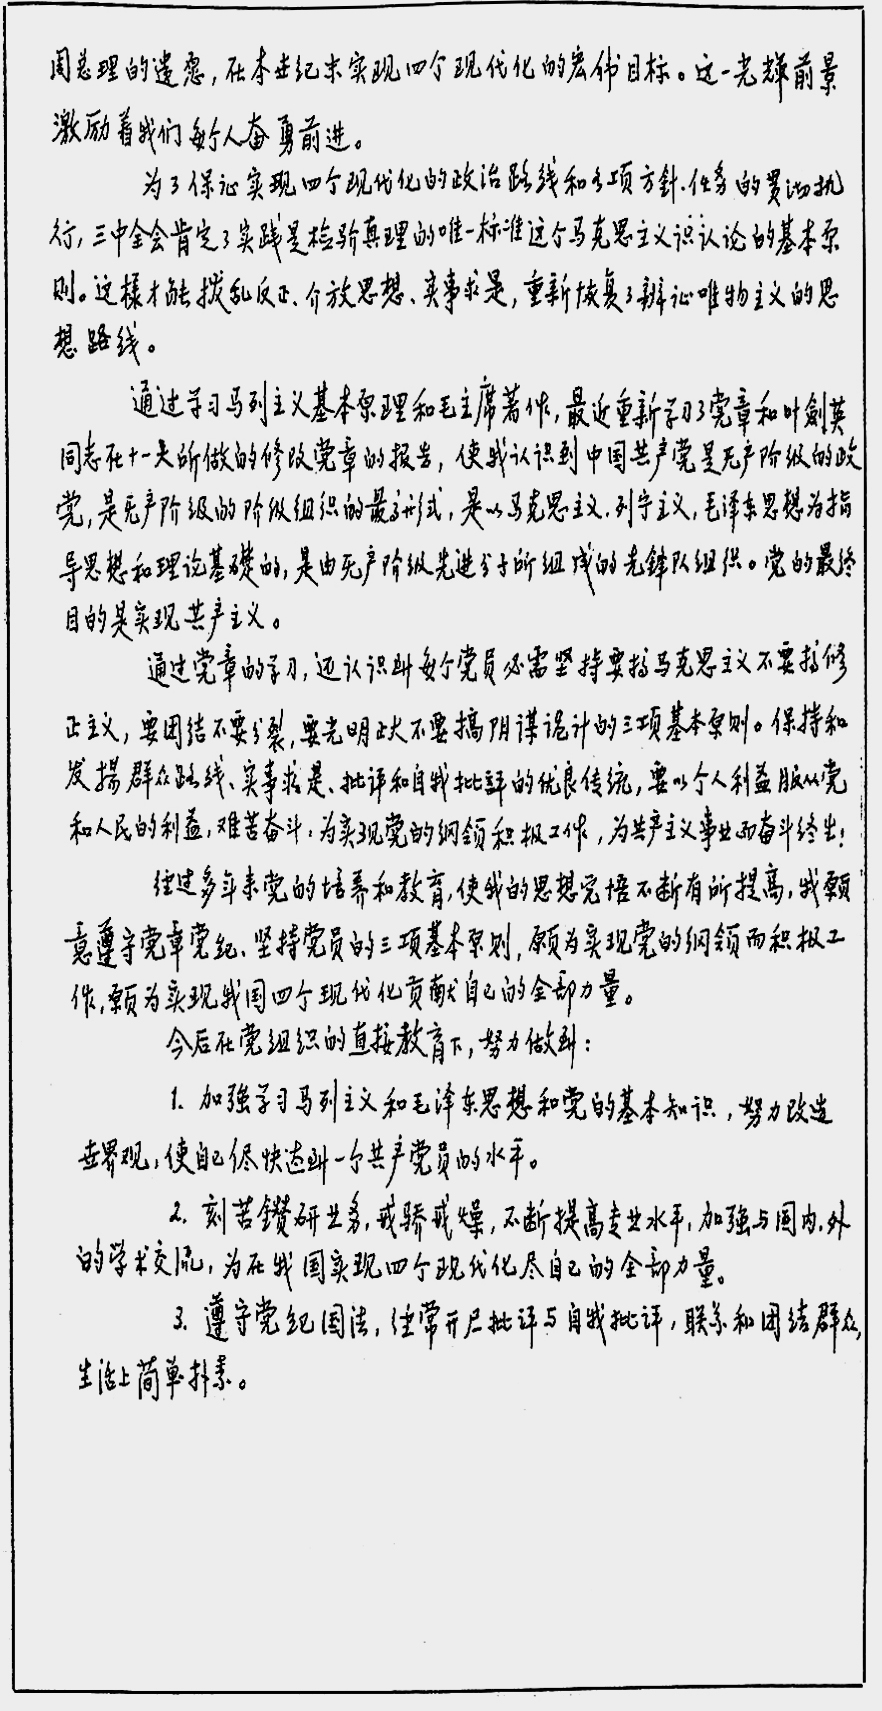 周总理的遗愿，在本世纪末实现四个现代化的宏伟目标。这一光辉前景
激励着我们每个人奋勇前进。
为了保证实现四个现代化的政治路线和各项方针、任务的贯彻执
行，三中全会肯定了实践是检验真理的唯一标准这个马克思主义识认论的基本原
则。这樣才能拨乱反正、介放思想、实事求是，重新恢复了辨证唯物主义的思
想路线。
通过学习马列主义基本原理和毛主席著作，最近重新学习了党章和叶剑英
同志在十一大所做的修改党章的报告，使我认识到中国共产党是无产阶级的政
党，是无产阶级的阶级组织的最高形式，是以马克思主义、列宁主义，毛泽东思想为指
导思想和理论基礎的，是由无产阶级先进分子所组成的先锋队组织。党的最终
目的是实现共产主义。
通过党章的学习，还认识到每个党员必需坚持要搞马克思主义不要搞修
正主义，要团结不要分裂，要光明正大不要搞阴谋诡计的三项基本原则。保持和
发揚群众路线、实事求是、批评和自我批評的优良传统，要以个人利益服从党
和人民的利益，艰苦奋斗，为实现党的纲领积极工作，为共产主义事业而奋斗终生！
经过多年来党的培养和教育，使我的思想觉悟不断有所提高，我願
意遵守党章党纪、坚持党员的三项基本原则，愿为实现党的纲领而积极工
作，願为实现我国四个现代化贡献自己的全部力量。
今后在党组织的直接教育下，努力做到：
1. 加强学习马列主义和毛泽东思想和党的基本知识，努力改造
世界观，使自己尽快达到一个共产党员的水平。
2. 刻苦鑽研业务，戒骄戒燥，不断提高专业水平，加强与国内、外
的学术交流，为在我国实现四个现代化尽自己的全部力量。
3. 遵守党纪国法，经常开尸批评与自我批评，联系和团结群众，
生活上简单朴素。